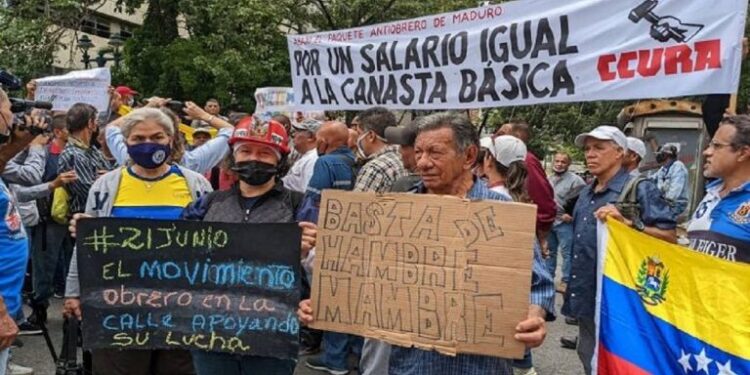 ABAJO EL PAQUETE ANTIOBRERO DE MADURO
POR UN SALARIO IGUAL
A LA CANASTA BÁSICA
CCURA
#21 JUNIO
EL MOVIMIENTO
OBRERO EN LA
CALLE APOYANDO
SU LUCHA
BASTA DE
HAMBRE
MAMBRE